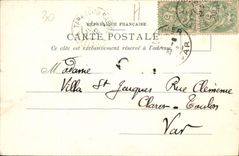 30
RÉPUBLIQUE FRANÇAISE
CARTE POSTALE
Ce côté est exclusivement réservé à l'adresse
VAR
Madame
Villa St Jacques Rue Clémence
Claret-Toulon
Var